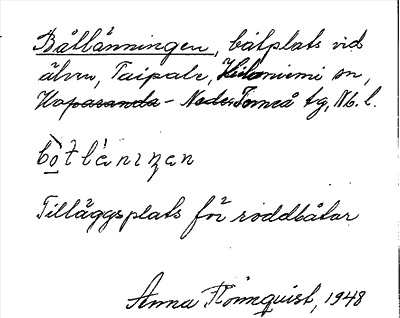 Båtlänningen, båtplats vid
älven, Taipale, Hietaniemi sn,
Haparanda - Neder Torneå tg, Nb. l.
bòtlänıŋən
Tilläggsplats för roddbåtar
Anna Rönnquist, 1948